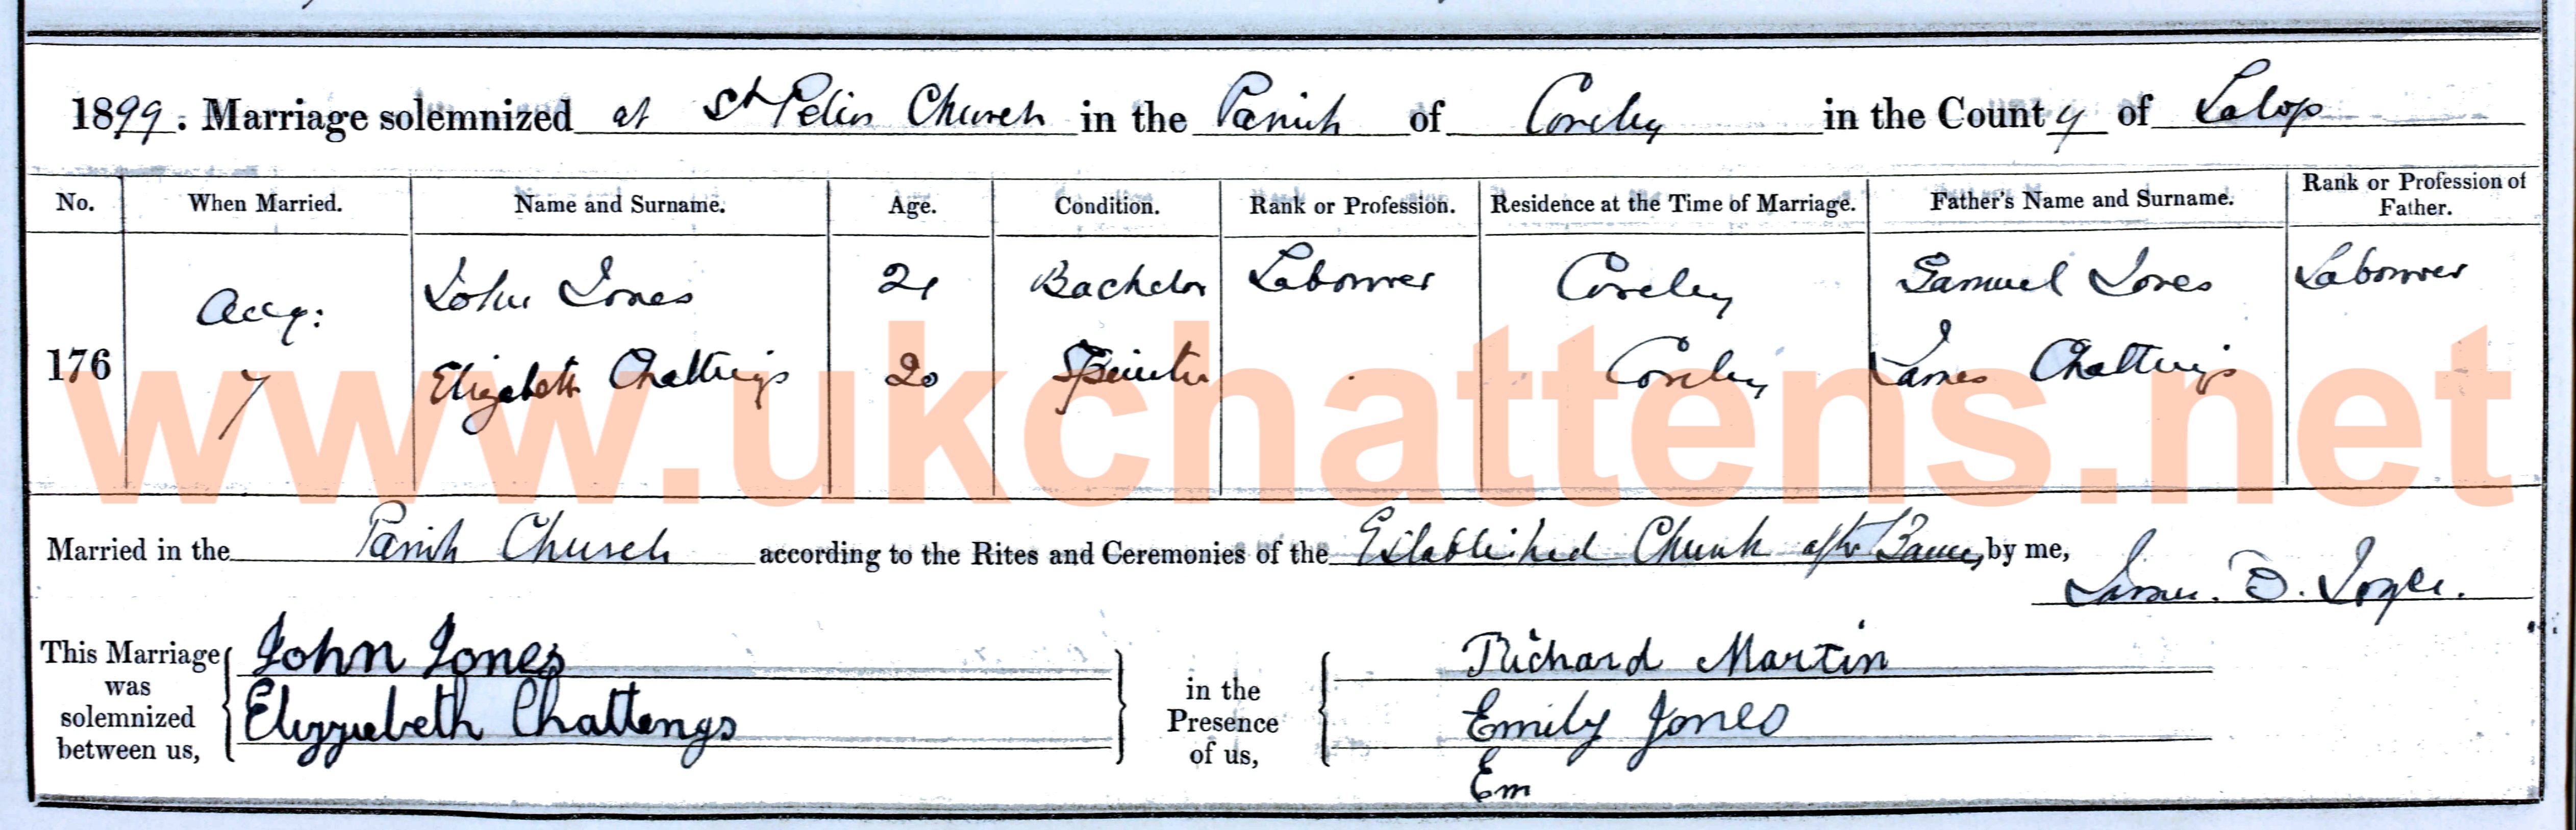 1899. Marriage solemnized at St Peters Church in the Parish of Coreley in the County of Salop
No. When Married. Name and Surname. Age. Condition. Rank or Profession. Residence at the Time of Marriage. Father's Name and Surname. Rank or Profession of Father.
176 Aug: 7 John Jones 21 Bachelor Labourer Coreley Samuel Jones Labourer
Elizabeth Chattings 20 Spinster Coreley James Chattings
www.ukchattens.net
Married in the Parish Church according to the Rites and Ceremonies of the Established Church after Banns, by me,
James. D.
This Marriage was solemnized between us, John Jones
Elizzuebeth Chattengs
in the Presence of us, Richard Martin
Emily Jones
Em